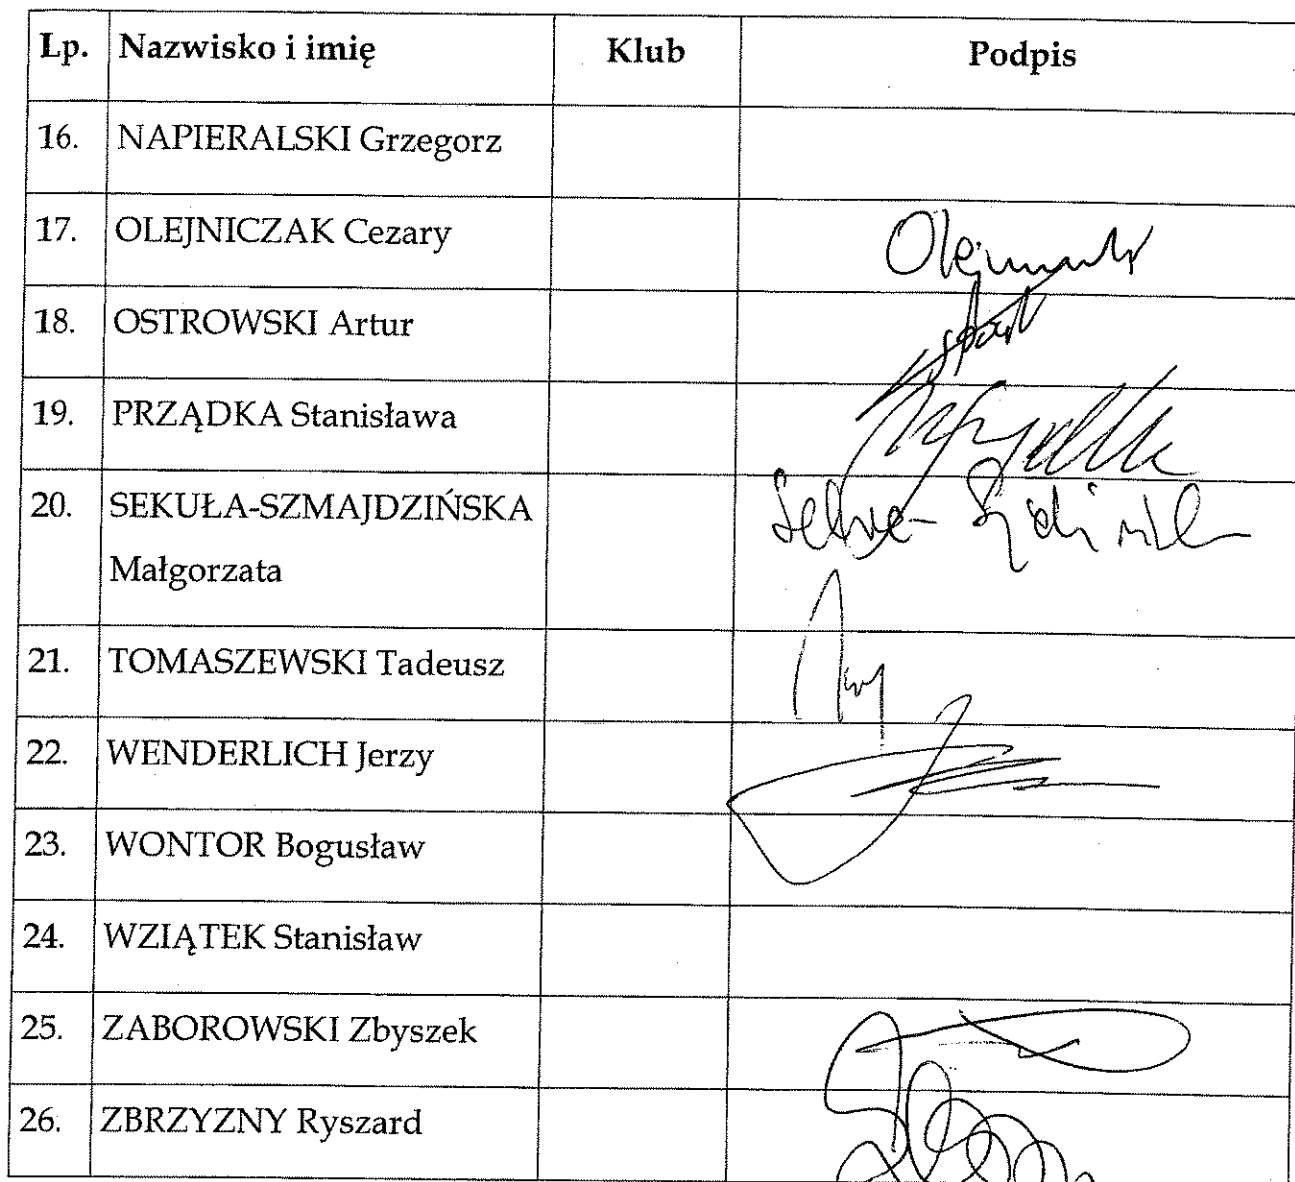 Lp. Nazwisko i imię Klub Podpis
16. NAPIERALSKI Grzegorz
17. OLEJNICZAK Cezary
18. OSTROWSKI Artur
19. PRZĄDKA Stanisława
20. SEKUŁA-SZMAJDZIŃSKA
Małgorzata
21. TOMASZEWSKI Tadeusz
22. WENDERLICH Jerzy
23. WONTOR Bogusław
24. WZIĄTEK Stanisław
25. ZABOROWSKI Zbyszek
26. ZBRZYZNY Ryszard